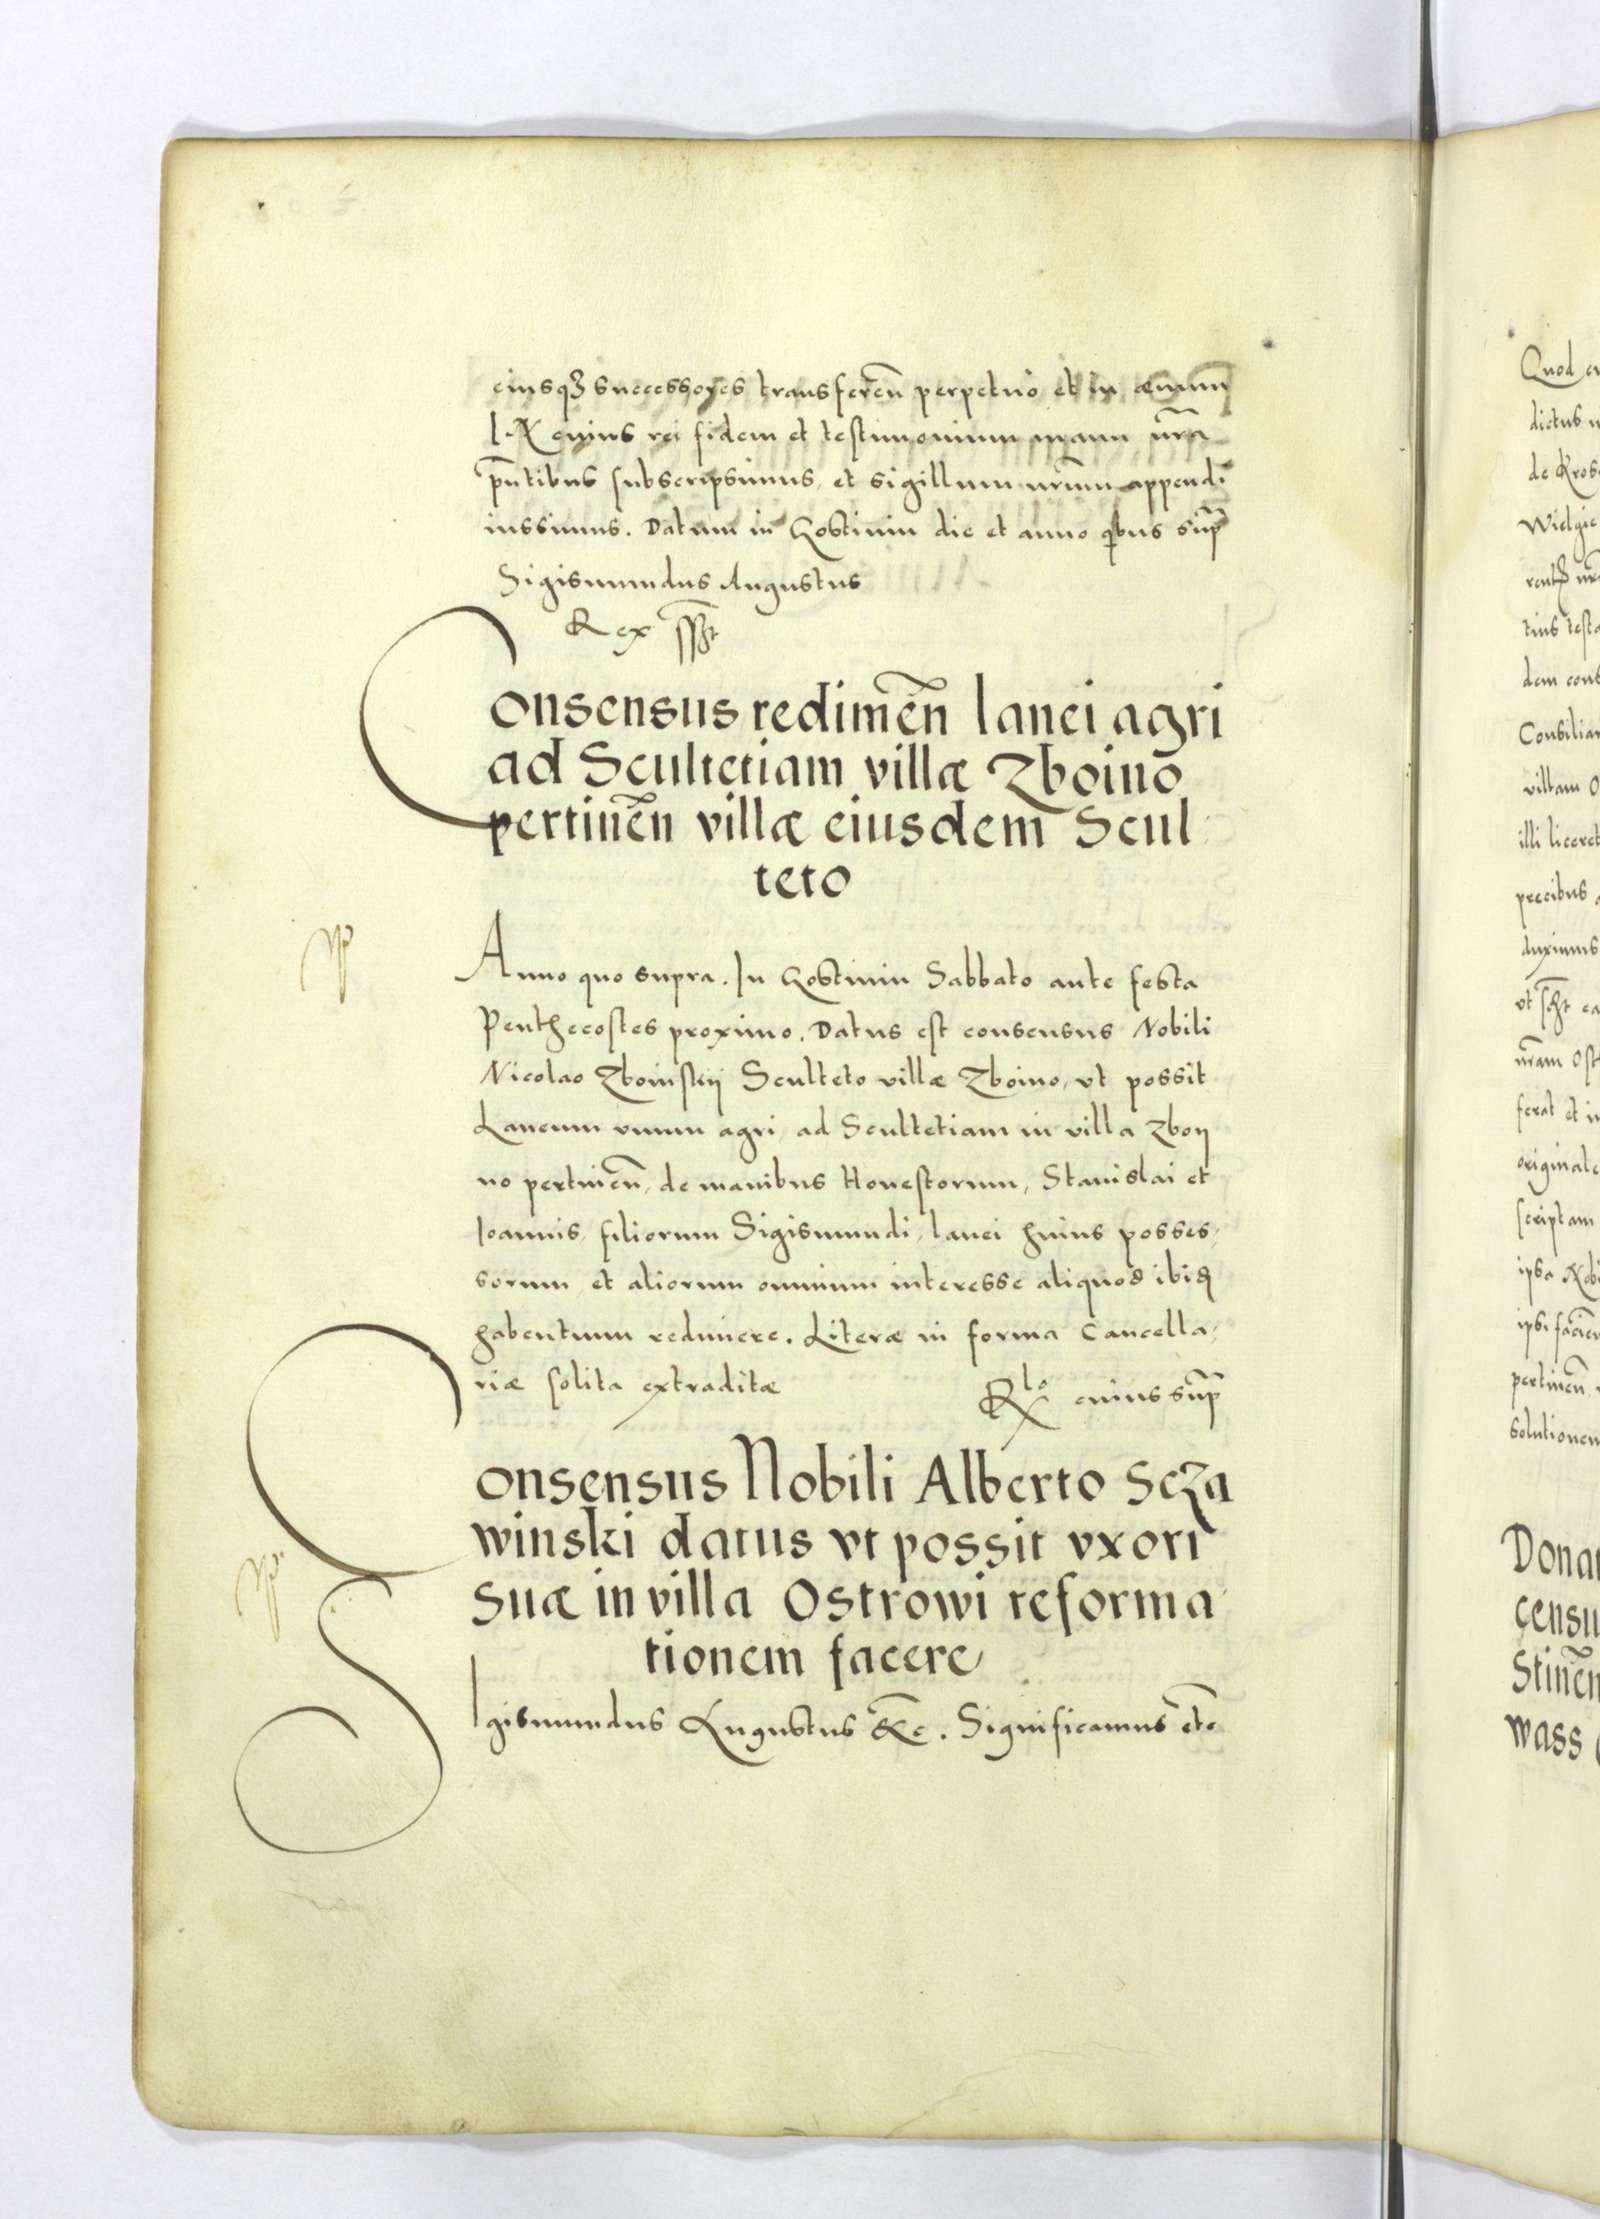 eiusq3 successores transferen̄ perpetuo et in ævum
In cuius rei fidem et testimonium manu nr̄a
p̄ntibus subscripsimus, et sigillum nr̄um appendi
iussimus. Datum in Gostinin die et anno qibus sup̄
Sigismundus Augustus
Rex sst
Consensus redimen̄ lanei agri
ad Scultetiam villæ Zboino
pertinen̄ villæ eiusdem Scul
teto
Anno quo supra. In Gostinin Sabbato ante festa
Penthecostes proximo. Datus est consensus Nobili
Nicolao Zboinskij Sculteto villæ Zboino, vt possit
Laneum vnum agri, ad Scultetiam in villa Zboij
no pertinen̄, de manibus Honestorum, Stanislai et
Ioannis, filiorum Sigismundi, lanei huius posses,
sorum, et aliorum omnium interesse aliquod ibid
habentium redimere. Literæ in forma Cancella,
riæ solita extraditæ
Rlo cuius sup̄
Consensus Nobili Alberto Scza
winski datus vt possit vxori
suæ in villa Ostrowi reforma
tionem facere
Sigismundus Augustus &c̄. Significamus etc̄
Quod
dictus
de
Wielgie
tius
dem
villam
illi liceret
precibus
duximus
vt
nr̄am
ferat et
scriptam
ipsa
ipsi
pertinen̄
Dona
censu
Stinen̄
wass